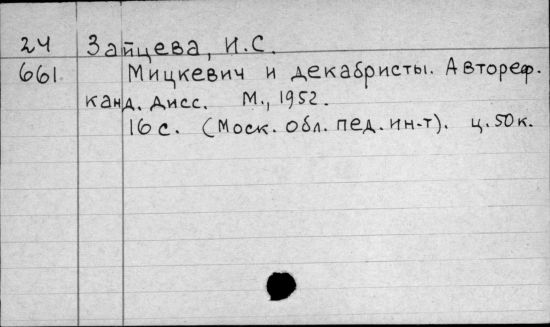 24 Зайцева, И.С.
661 Мицкевич и декабристы. Автореф.
канд. дисс. М., 1952.
16 с. (Моск. обл. пед. ин-т). ц. 50 к.